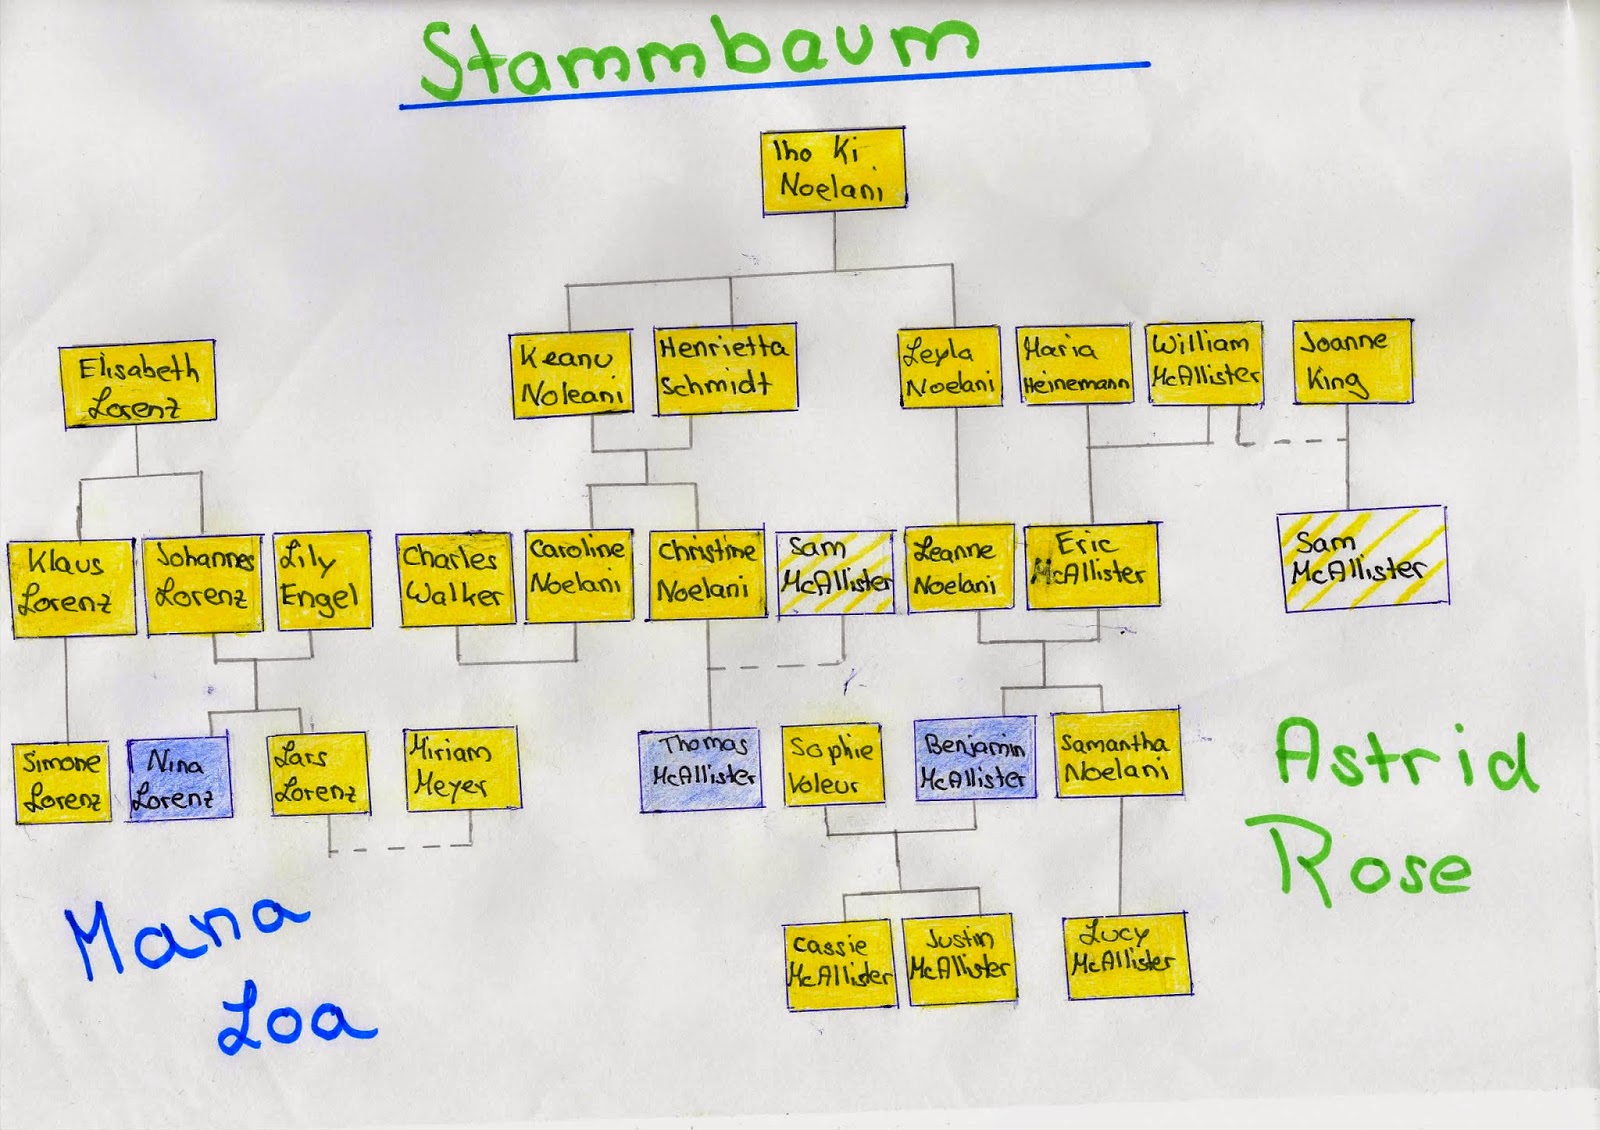 Stammbaum
Iho Ki
Noelani
Elisabeth
Lorenz
Keanu
Noleani
Henrietta
Schmidt
Leyla
Noelani
Maria
Heinemann
William
McAllister
Joanne
King
Klaus
Lorenz
Johannes
Lorenz
Lily
Engel
Charles
Walker
Caroline
Noelani
Christine
Noelani
Sam
McAllister
Leanne
Noelani
Eric
McAllister
Sam
McAllister
Simone
Lorenz
Nina
Lorenz
Lars
Lorenz
Miriam
Meyer
Thomas
McAllister
Sophie
Voleur
Benjamin
McAllister
Samantha
Noelani
Astrid
Rose
Cassie
McAllister
Justin
McAllister
Lucy
McAllister
Mana
Loa